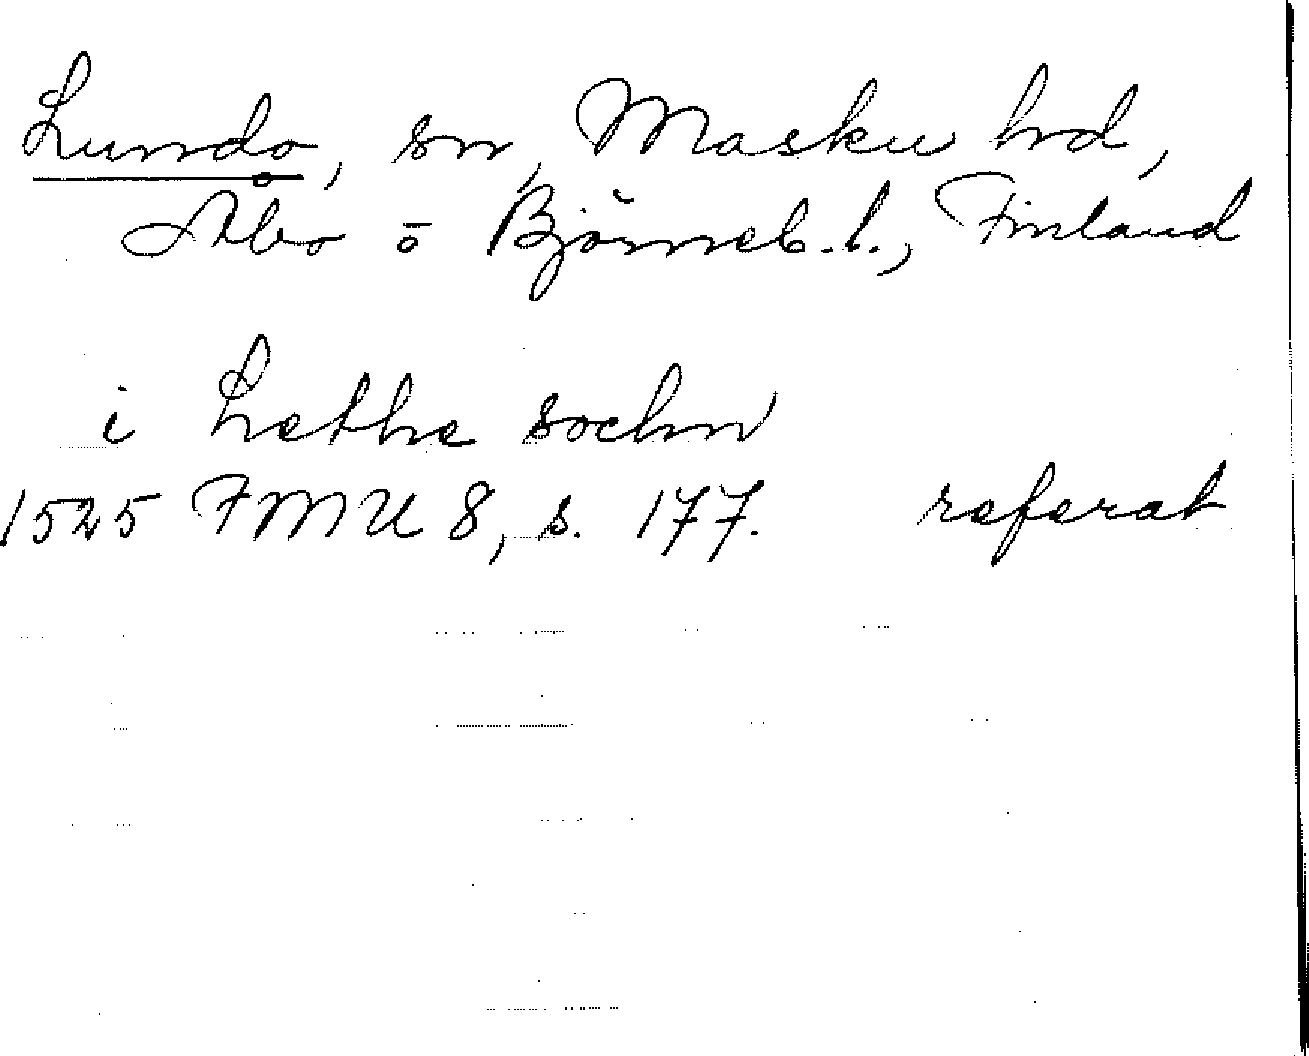 Lundo, sn, Masku hd,
Åbo o Björneb. l., Finland
i Lethe sochn
1525 FMU 8, s. 177. referat